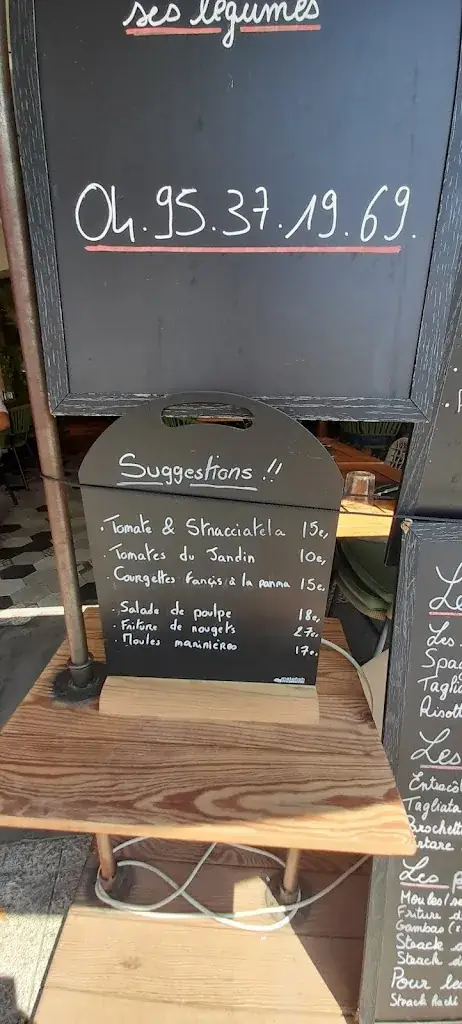 ses légumes
04.95.37.19.69.
Suggestions !!
· Tomate & Stracciatela 15e,
· Tomates du Jardin 10e,
· Courgettes farçis à la parma 15e,
· Salade de poulpe 18e,
· Friture de rougets 27e.
· Moules marinières 17e.
Les
Spag
Taglia
Risott
Les
Entrecôt
Tagliata
Brochette
Tartare
Les p
Moules/
Friture d
Gambas (
Steack d
Steack d
Pour les
Steack Haché